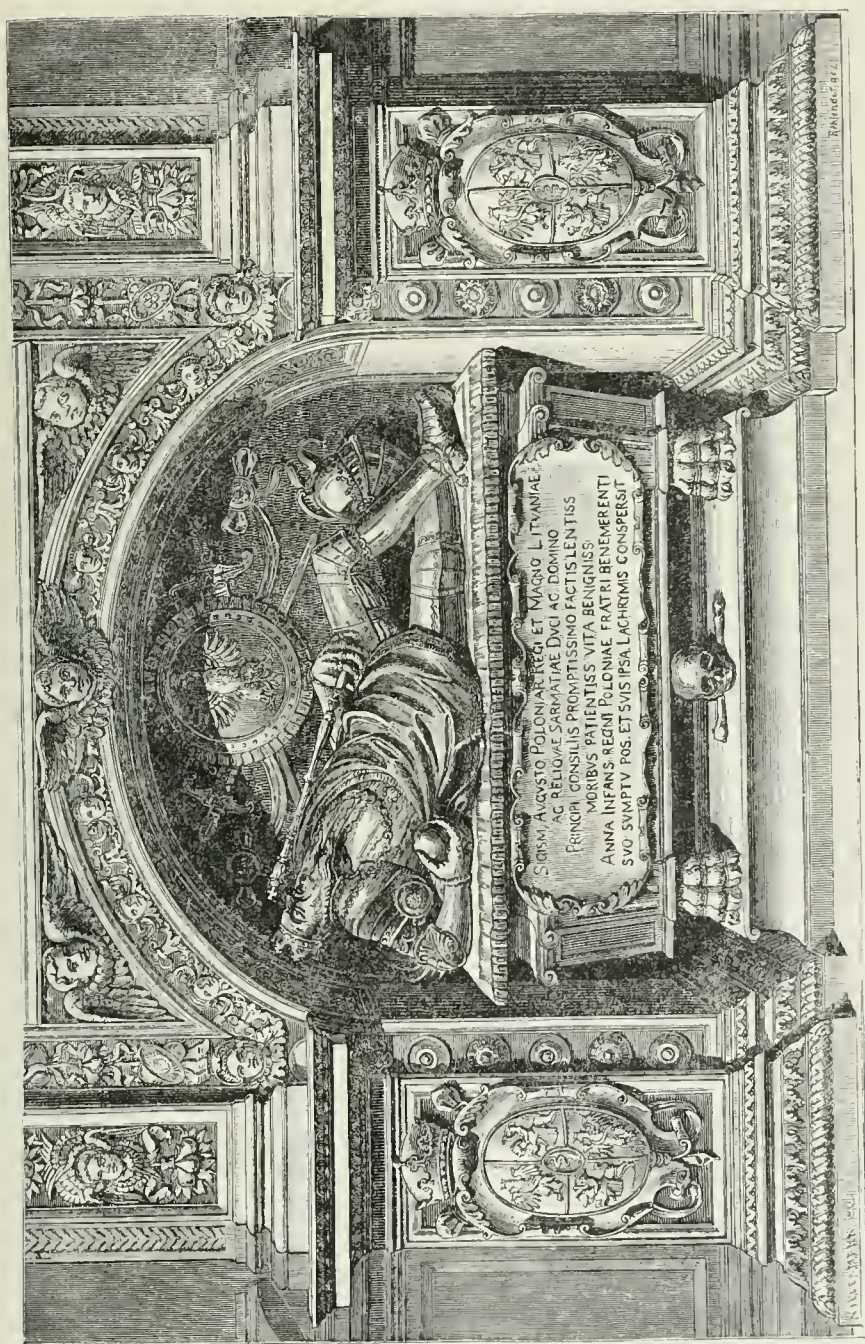 SIGISM, AVGVSTO POLONIAE REGI ET MAGNO LITVANIAE
AC RELIQVAE SARMATIAE DVCI AC DOMINO
PRINCIPI CONSILIIS PROMPTISSIMO FACTIS LENTISS
MORIBVS PATIENTISS VITA BENIGNISS.
ANNA INFANS REGINI POLONIAE, FRATRI BENEMERENTI
SVO SVMPTV POS. ET SVIS IPSA LACHROMIS CONSPERSIT